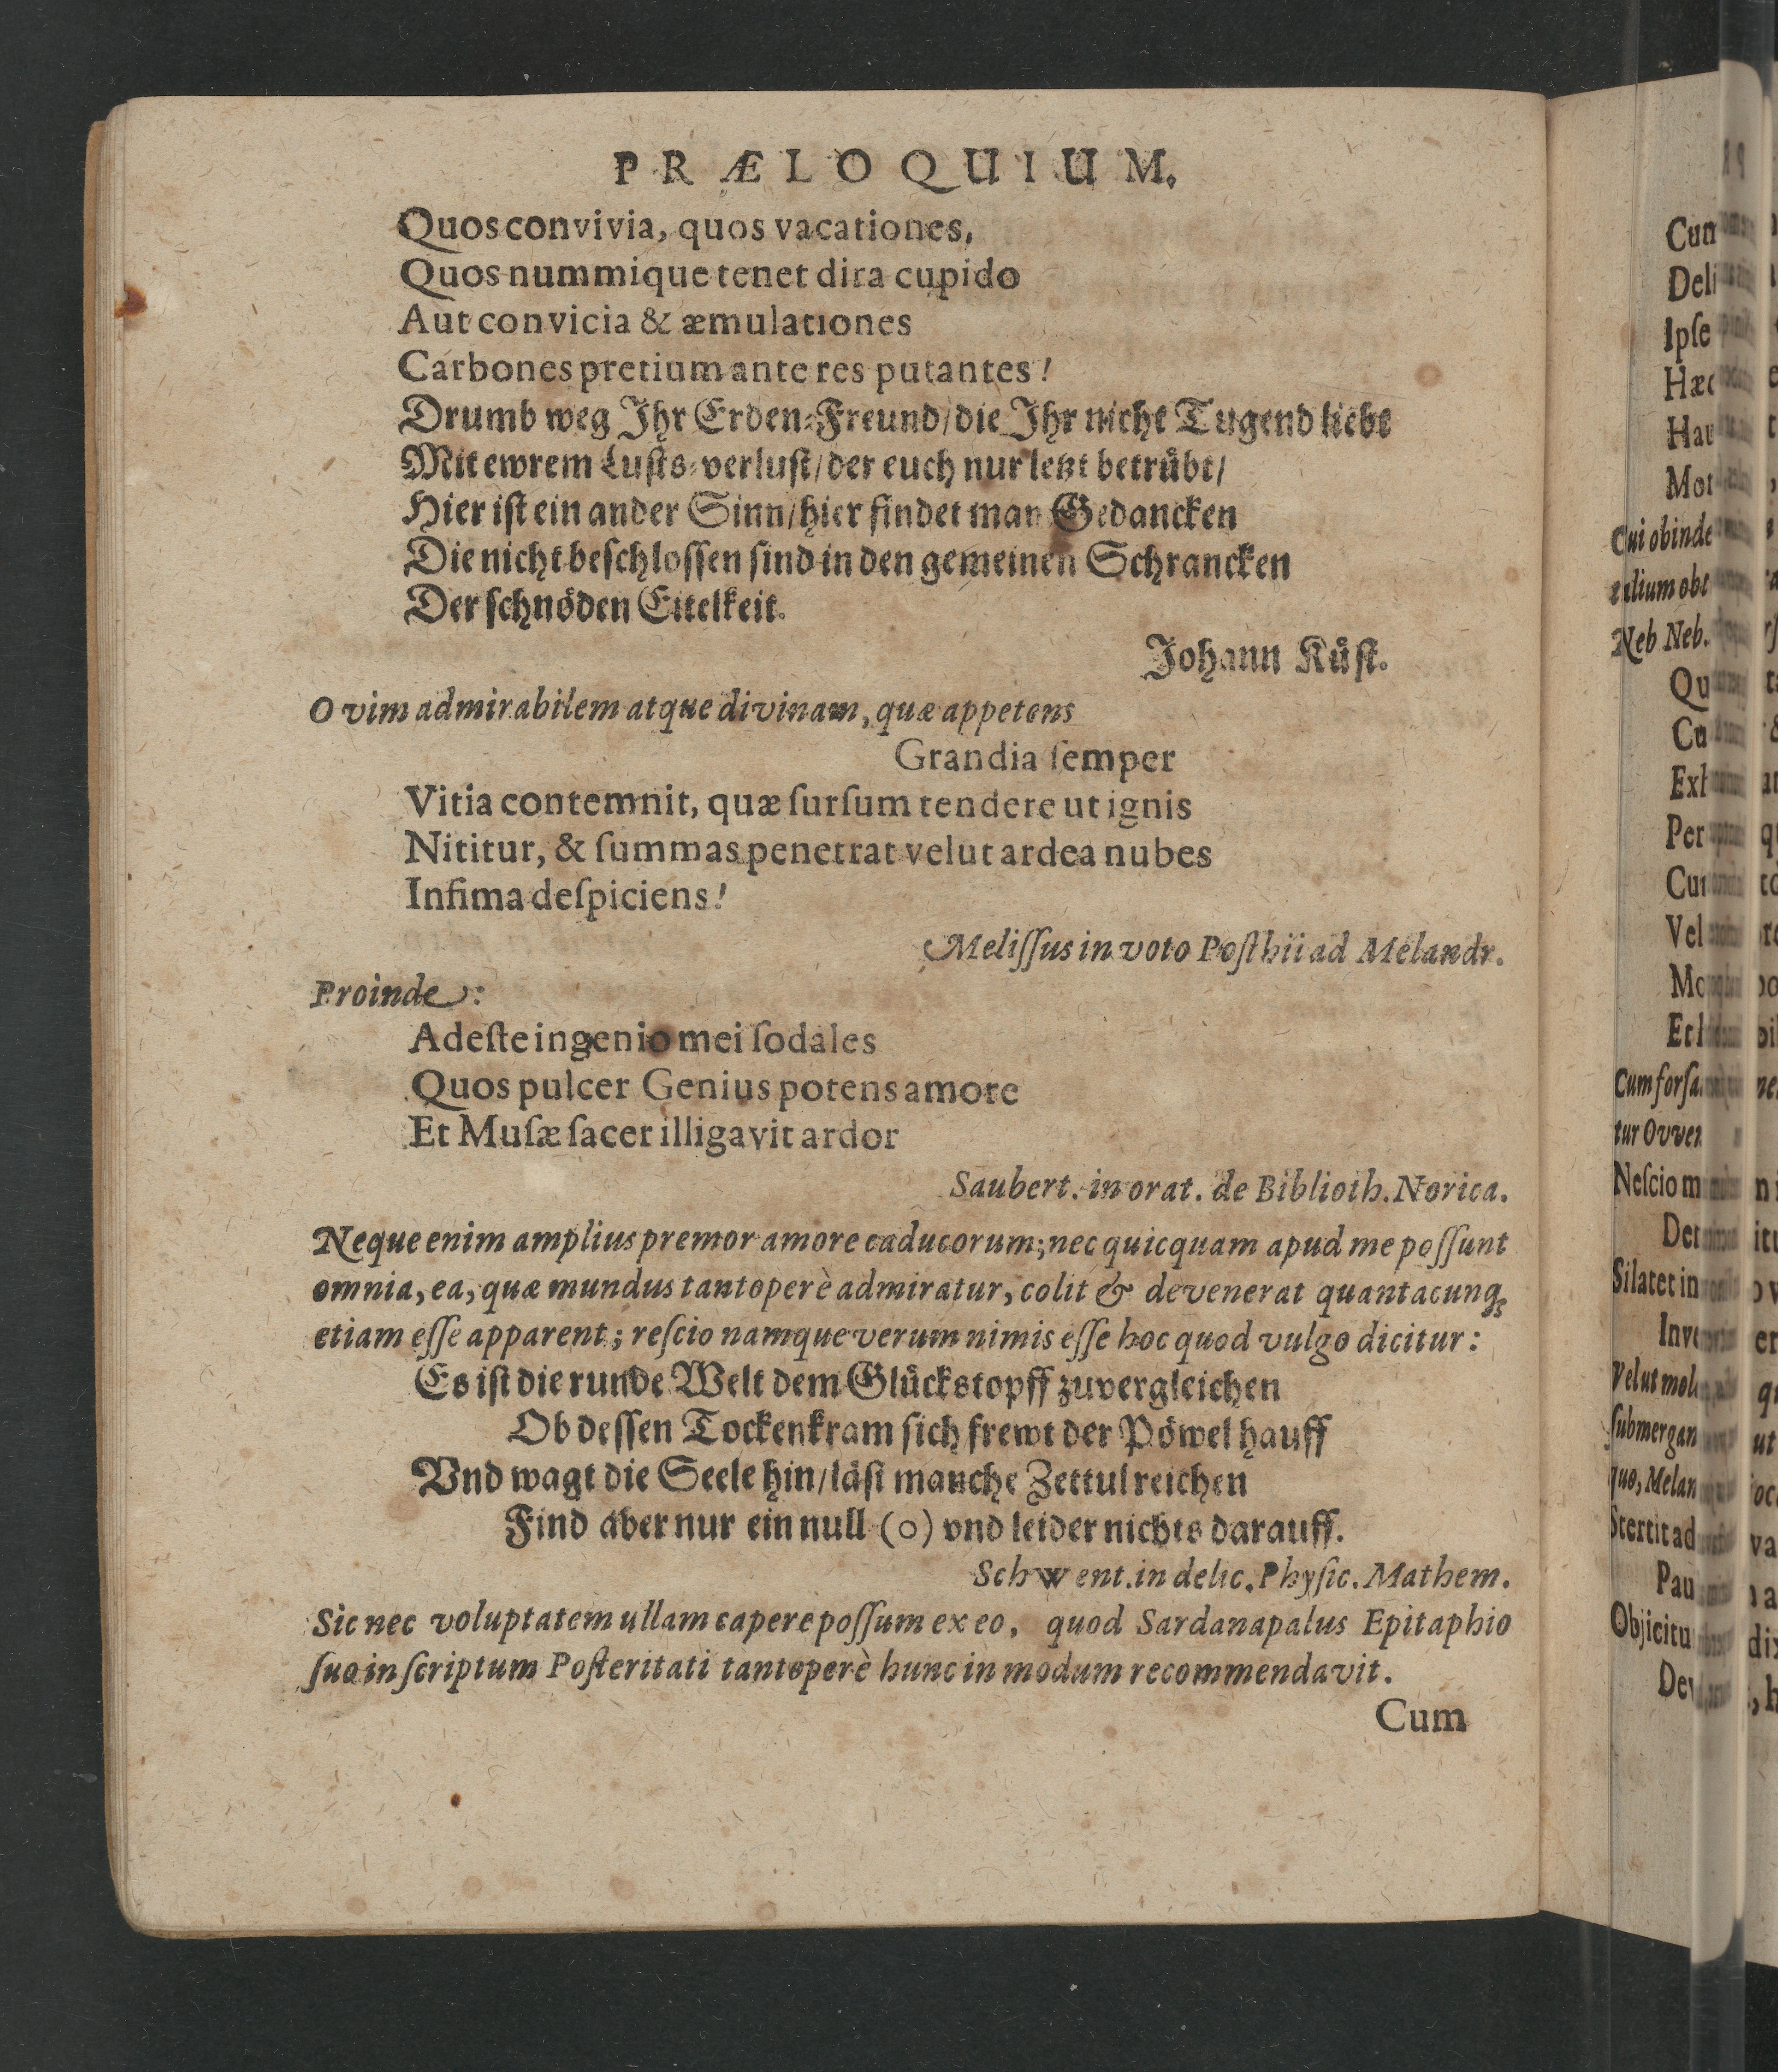 PRÆLOQUIUM.
Quos convivia, quos vacationes,
Quos nummique tenet dira cupido
Aut convicia & æmulationes
Carbones pretium ante res putantes!
Drumb weg Ihr Erden-Freund/ die Ihr nicht Tugend liebt
Mit ewrem Lusts-verlust/ der euch nur letzt betrübt/
Hier ist ein ander Sinn/ hier findet man Gedancken
Die nicht beschlossen sind in den gemeinen Schrancken
Der schnöden Eitelkeit.
Johann Rüst.
O vim admirabilem atque divinam, quæ appetens
Grandia ſemper
Vitia contemnit, quæ ſurſum tendere ut ignis
Nititur, & ſummas penetrat velut ardea nubes
Infima deſpiciens!
Meliſſus in voto Poſthii ad Melandr.
Proinde:
Adeſte ingenio mei ſodales
Quos pulcer Genius potens amore
Et Muſæ ſacer illigavit ardor
Saubert. in orat. de Biblioth. Norica.
Neque enim amplius premor amore caducorum; nec quicquam apud me poſſunt
omnia, ea, quæ mundus tantoperè admiratur, colit & devenerat quantacunq;
etiam eſſe apparent; reſcio namque verum nimis eſſe hoc quod vulgo dicitur:
Es ist die runde Welt dem Glückstopff zuvergleichen
Ob dessen Tockenkram sich frewt der Pöwel hauff
Vnd wagt die Seele hin/ läst manche Zettul reichen
Find aber nur ein null (o) vnd leider nichts darauff.
Schwent. in delic. Phyſic. Mathem.
Sic nec voluptatem ullam capere poſſum ex eo, quod Sardanapalus Epitaphio
ſuo inſcriptum Poſteritati tantoperè hunc in modum recommendavit.
Cum
Deli
Ipſe
Hæc
Cui obinde
Neb Neb.
Qu
Per
Vel
Cum forſa
tur Ovven
Neſcio m
Si latet in
Velut mol
ſubmergan
quo, Melan
Stertit ad
Pau
Objicitu